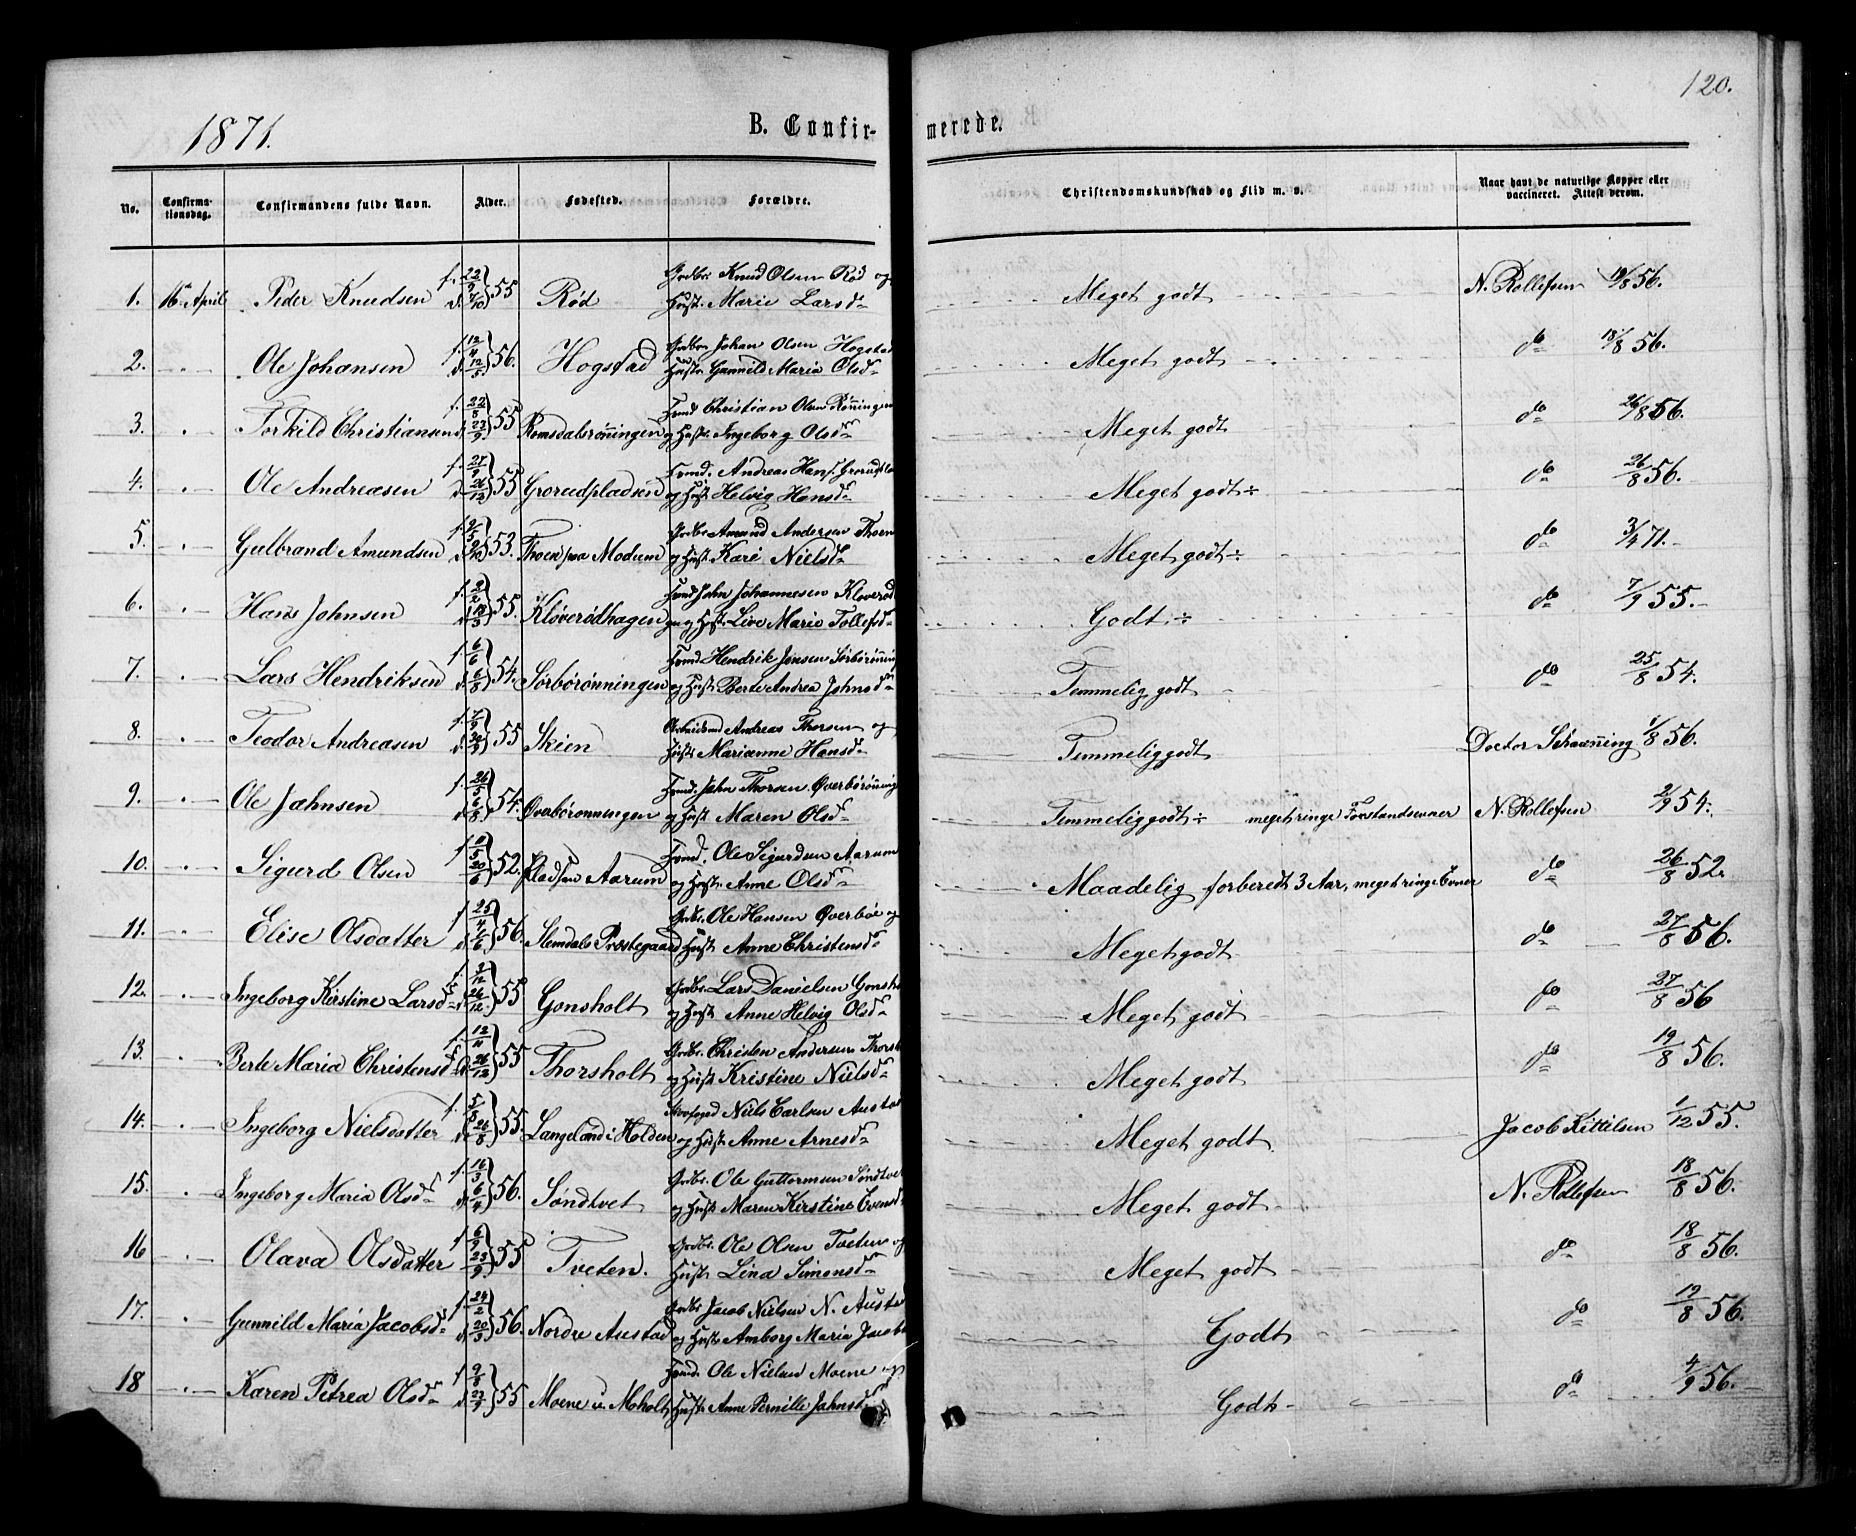 120.
1871. B. Confirmerede.
No. Confirmationsdag. Confirmandens fulde Navn. Alder. Fødested. Forældre. Christendomskundskab og Flid m. v. Naar havt de naturlige Kopper eller vaccineret. Attest derom.
1. 16 April Peder Knudsen f. 22/9 d. 7/10 55 Rød Grdbr. Knud Olsen Rød og Hustr. Marie Larsdr. Meget godt N. Rollefsen 19/8 56.
2. Ole Johansen f. 12/4 d. 12/5 56. Hogstad Grdbr. Johan Olsen Hogstad Hustr. Gunnild Maria Olsdr. Meget godt do 18/8 56.
3. Torkild Christiansen f. 22/8 d. 23/9 55 Romsdalsrønningen Hmd. Christian Olsen Rønningen og Hustr. Ingeborg Olsdr. Meget godt do 26/8 56.
4. Ole Andreasen f. 27/9 d. 26/12 55 Grorudpladsen Hmd. Andreas Hans. og Hustr. Helvig Hansdr. Meget godt ÷ do 26/8 56.
5. Gulbrand Amundsen 53. Thoen paa Modum Grdbr. Amund Andersen Thoen og Hustr. Kari Nielsdr. Meget godt ÷ do 3/4 71.
6. Hans Johnsen 55. Kløverødhagen Hmd. John Johannesen Kløverød og Hustr. Live Marie Tollefsdr. Godt ÷ do 7/9 55.
7. Lars Hendriksen f. 6/6 d. 6/8 54. Sørbørønningen Hmd. Hendrik Jensen Sørbørønning og Hustr. Berte Andrea Johnsdr. Temmelig godt do 25/8 54.
8. Teodor Andreasen f. 7/9 d. 30/9 55 Skien Arbeidsmd Andreas Thorsen og Hustr. Marianne Hansdr. Temmelig godt Doctor Schauning 1/8 56.
9. Ole Jahnsen f. 26/5 d. 6/8 54. Øverbørønningen Hmd. Jahn Thorsen Øverbørønning og Hustr. Maren Olsdr. Temmelig godt ÷ meget ringe Forstandsevner N. Rollefsen 2/9 54.
10. Sigurd Olsen f. 11/5 20/6 52. Plads u. Aarum Hmd. Ole Sigurdsen Aarum og Hustr. Anne Olsdr. Maadelig forberedt 3 Aar, meget ringe Evner do 26/8 52.
11. Elise Olsdatter f. 25/4 d. 1/6 56. Slemdals Præstegaard Grdbr. Ole Hansen Øverbøe og Hustr. Anne Christensdr. Meget godt do 27/8 56.
12. Ingeborg Kirstine Larsdr. f. 2/12 d. 26/12 55 Gonsholt Grdbr. Lars Danielsen Gonsh og Hustr. Anne Helvig Olsdr. Meget godt do 27/8 56
13. Berte Maria Christensdr. f. 12/11 d. 26/12 55 Thorsholt Grdbr. Christen Andersen Thorsh og Hustr. Kristine Nielsdr. Meget godt do 19/8 56.
14. Ingeborg Nielsdatter f. 5/8 d. 26/8 55. Langeland i Holden Skovfoged Niels Carlsen Austad og Hustr. Anne Arnesdr. Meget godt Jacob Kittilsen 1/12 55.
15. Ingeborg Maria Olsdr. f. 16/3 d. 6/4 56. Søndtvet Grdbr. Ole Guttormsen Søndtvet og Hustr. Maren Kirstine Evensdr Meget godt N. Rollefsen 18/8 56.
16 Olava Olsdatter f. 6/9 23/9 55 Tveten. Grdbr. Ole Olsen Tveten og Hustr. Lina Simonsdr. Meget godt do 18/8 56.
17. Gunnild Maria Jacobsdr. f. 24/2 d. 20/3 56. Nordre Austad Grdbr. Jacob Nielsen N. Austad og Hustr. Amborg Maria Jacobs Godt do 19/8 56.
18 Karen Petrea Olsdr. f. 9/8 d. 23/9 55 Moene u. Moholt Hmd. Ole Nielsen Moene og Hustr. Anne Pernille Jahnsd Godt do 4/9 56.